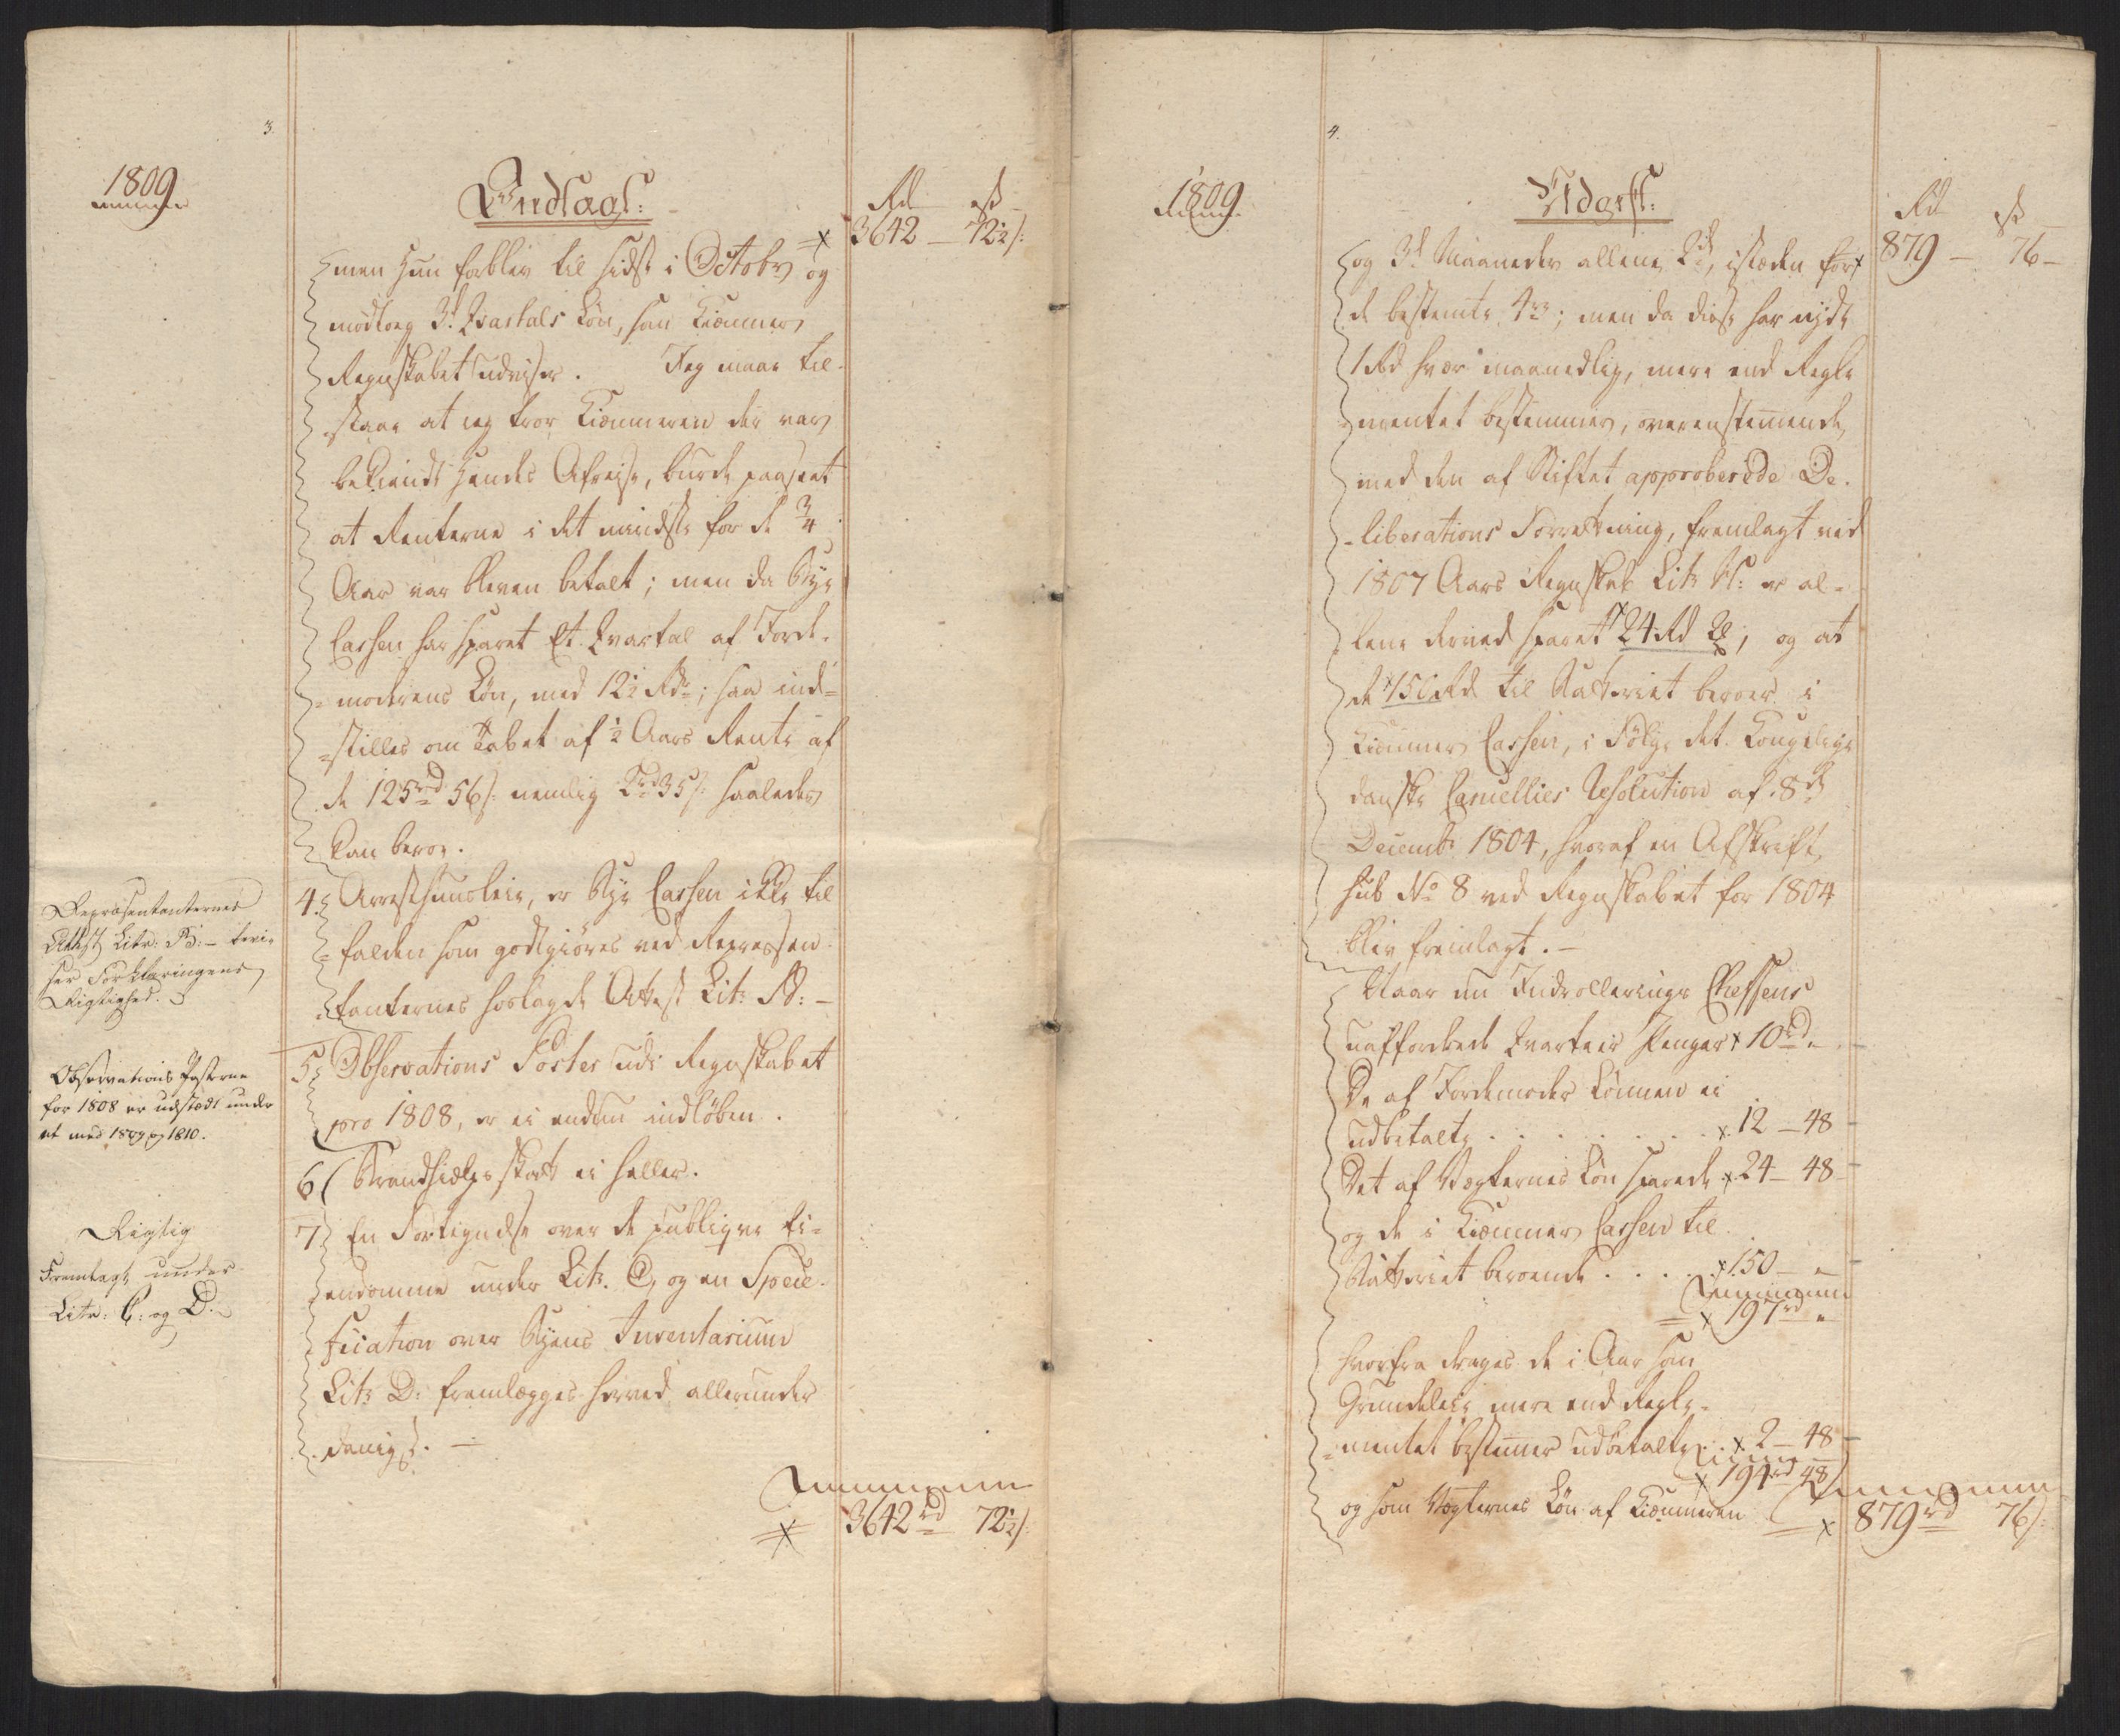 3.
1809
Indtægt:
Rd ß
3642 – 72½ ß:
men hun forblev til sidst i Octobr og
modtog 3de Qvartals Løn, som Kiæmner
Regnskabet udviser. Jeg maae til-
staae at jeg troer Kiæmneren der var
bekiendt hendes Afreise, burde paaseet
at Renterne i det mindste for de ¾
Aar var bleven betalt; men da Bye
Cassen har sparet Et Qvartal af Jorde-
-moderens Løn, med 12½ Rdr; saa ind-
-stilles om Tabet af ½ Aars Rente af
de 125rd 56ß nemlig 2rd 35ß saaledes
kan beroe.
4. Arresthuusleie, er Bye Cassen ikke til
-falden som godtgiøres ved Repræsen-
-tanternes hoslagde Attest Litr B: –
5. Observations Poster udi Regnskabet
pro 1808, er ei endnu indløben.
6 Brandhielps skat ei heller.
7 En Fortegnelse over de publiqve Ei-
endomme under Litr. C, og en Speci-
fication over Byens Inventarium
Litr D: fremlægges herved allerunder
danigst. –
3642rd 72½ ß:
Repræsentanternes
Attest Litr: B: – bevi-
ser Forklaringens
Rigtighed.
Observations Posterne
for 1808 er udstædt under
et med 1809 og 1810.
Rigtig
Fremlagt under
Litr: C: og D.
4.
1809
Udgift:
Rd ß
879 – 76 –
og 3de Maaneder allene 2de, istæden for
de bestemte 4re; men da disse har nydt
1 Rd hver maanedlig, mere end Regle
mentet bestemmer, overenstemmende
med den af Stiftet approberede De-
-liberations Forretning, fremlagt ved
1807 Aars Regnskab Litr N: er al-
lene derved sparet 24 Rd, og at
de 150 Rd til Natteriet beroer i
Kiæmner Cassen, i Følge det Kongelige
danske Cancellies Resolution af 8de
Decembr 1804, hvoraf en Afskrift
sub No 8 ved Regnskabet for 1804
blev fremlagt. –
Naar nu Indrollerings Cheffens
uaffordrede Qvarteer Penger 10rd „
De af Jordemoder Lønnen ei
udbetalte . . . . . . 12 – 48
Det af Vægternes Løn sparede 24 – 48
og de i Kiæmner Cassen til
Natteriet beroende . . . . 150 – „
197rd „
hvorfra drages de i Aar som
Grundeleie mere end Regle-
-mentet bestemmer udbetalte . . 2 – 48
194rd 48
og som Vægternes Løn af Kiæmneren
879rd 76ß: